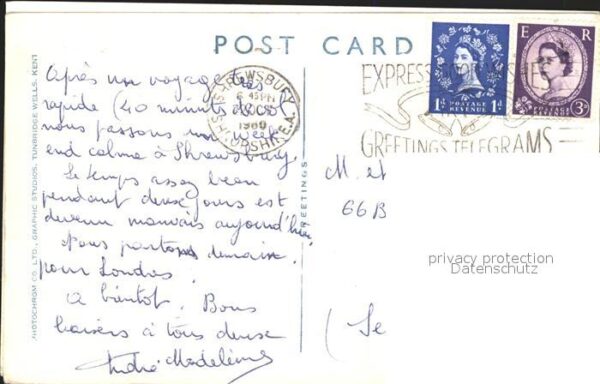 POST CARD
Après un voyage très
rapide (40 minutes)
nous passons un week
end calme à Shrewsbury.
Le temps assez beau
pendant deux jours est
devenu mauvais aujourd'hui.
Nous partons demain
pour Londres.
A bientôt. Bons
baisers à tous deux
André Madeleine
PHOTOCHROM CO., LTD., GRAPHIC STUDIOS, TUNBRIDGE WELLS, KENT
GREETINGS
SHREWSBURY
6 45PM
1960
SHROPSHIRE
EXPRESS
GREETINGS TELEGRAMS
1D POSTAGE REVENUE 1D
E R
POSTAGE
3D
M. et
66B
(Se
privacy protection
Datenschutz